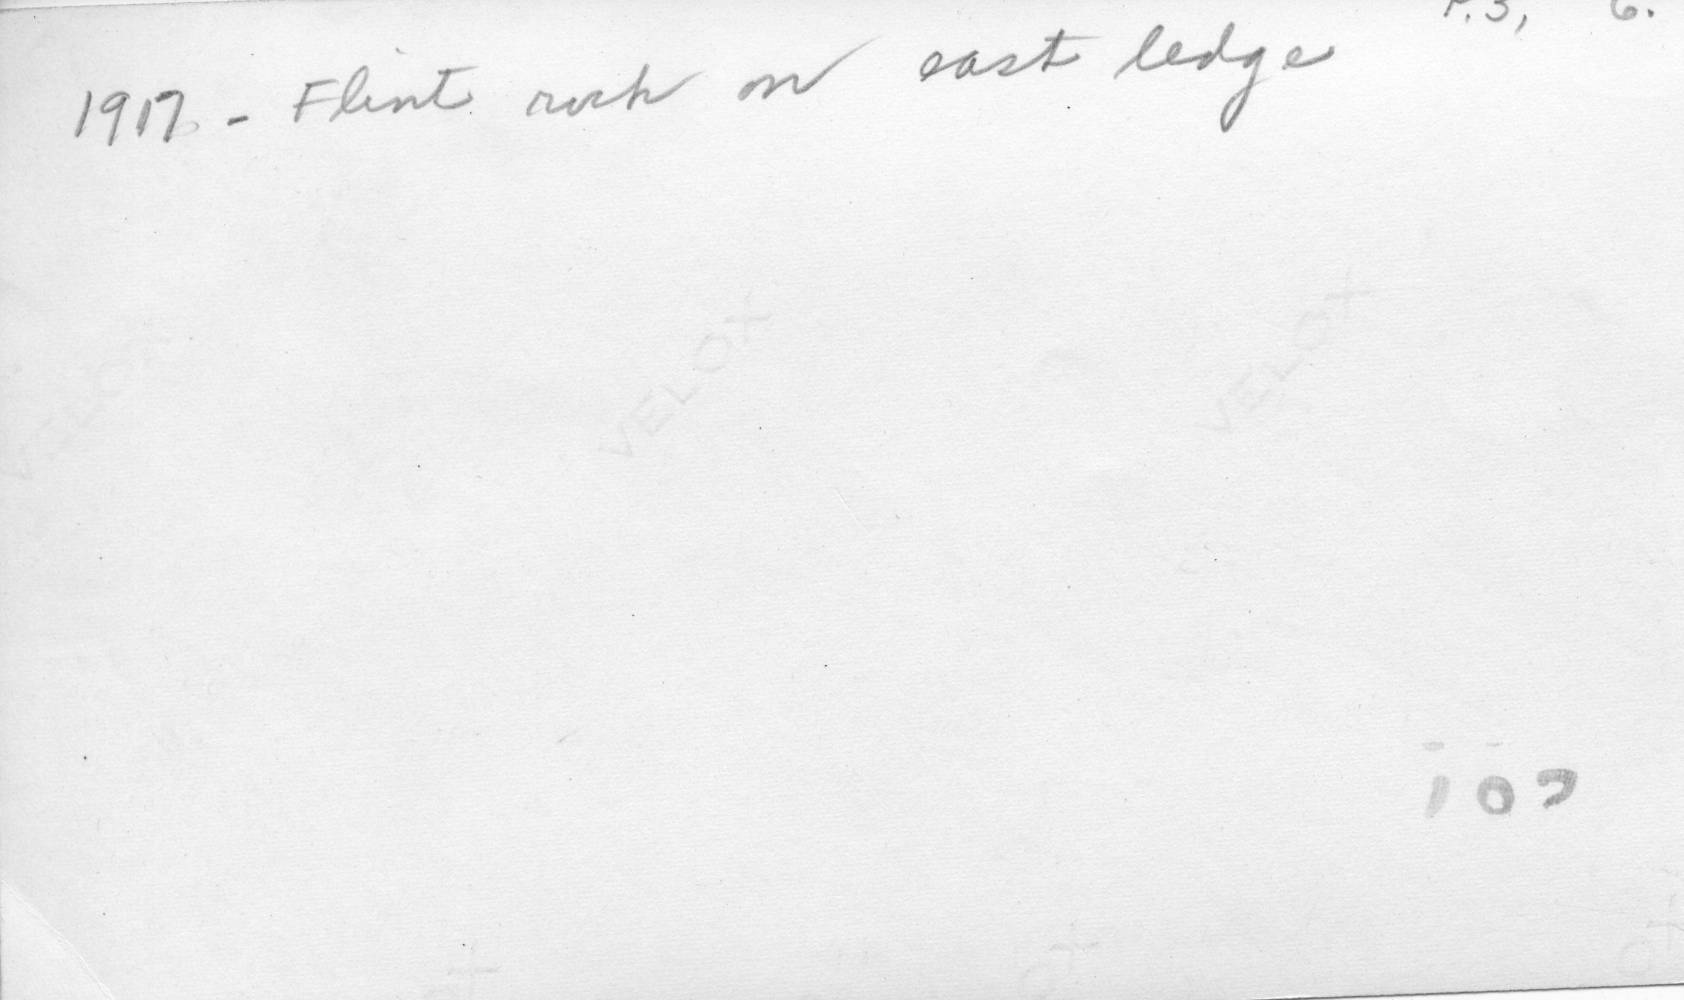 P.3, 6.
1917 - Flint rock on east ledge
VELOX VELOX VELOX
107